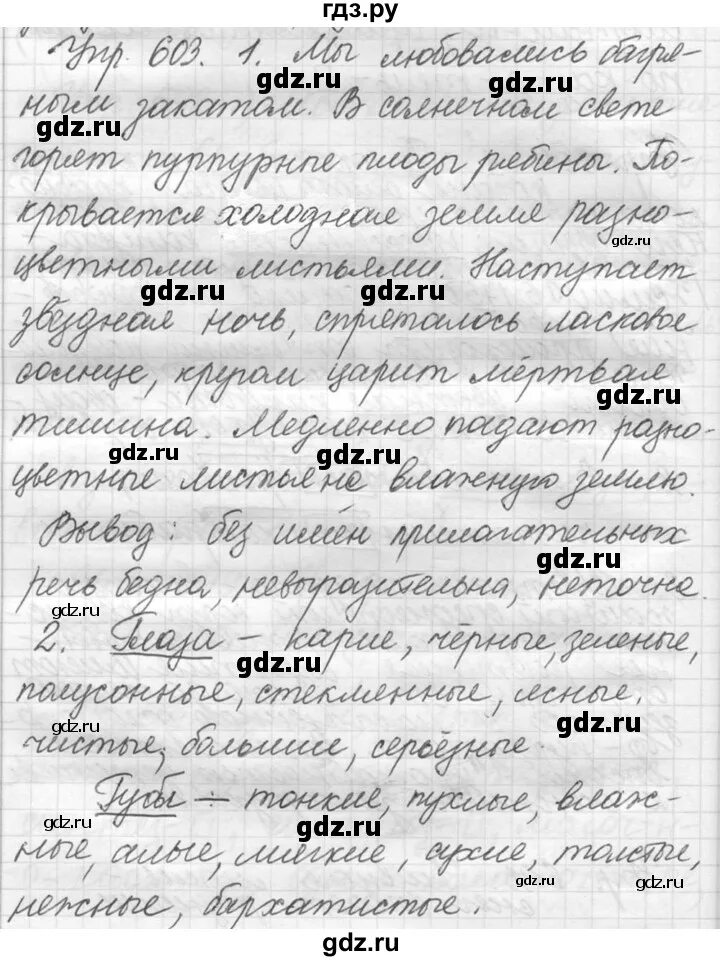 гдз.ру
Упр. 603. 1. Мы любовались багря-
gdz.ru gdz.ru
ным закатом. В солнечном свете
gdz.ru gdz.ru
горят пурпурные плоды рябины. По-
крывается холодная земля разно-
gdz.ru
цветными листьями. Наступает
gdz.ru gdz.ru
звёздная ночь, спряталось ласковое
солнце, кругом царит мёртвая
gdz.ru
тишина. Медленно падают разно-
gdz.ru gdz.ru
цветные листья на влажную землю.
Вывод: без имён прилагательных
gdz.ru
речь бедна, невыразительна, неточна.
gdz.ru
2. Глаза – карие, чёрные, зелёные,
gdz.ru
полусонные, стеклянные, ясные,
gdz.ru gdz.ru
чистые, большие, серьёзные.
Губы – тонкие, пухлые, влаж-
gdz.ru gdz.ru
ные, алые, мягкие, сухие, толстые,
gdz.ru gdz.ru
нежные, бархатистые.
gdz.ru